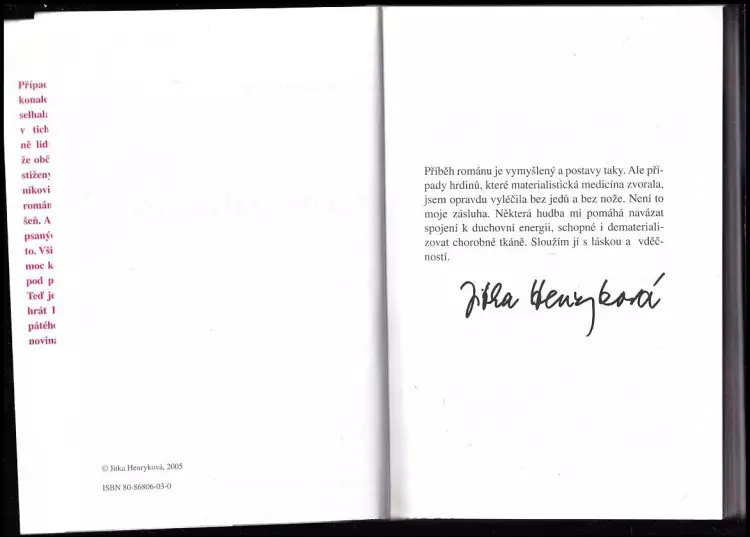 Případ
konale
selhala
v tich
ně lid
že obč
stižený
níkovi
román
šeň. A
psanýc
to. Vši
moc k
pod p
Teď je
hrát l
pátého
novina
© Jitka Henryková, 2005
ISBN 80-86806-03-0
Příběh románu je vymyšlený a postavy taky. Ale pří-
pady hrdinů, které materialistická medicína zvorala,
jsem opravdu vyléčila bez jedů a bez nože. Není to
moje zásluha. Některá hudba mi pomáhá navázat
spojení k duchovní energii, schopné i demateriali-
zovat chorobné tkáně. Sloužím jí s láskou a vděč-
ností.
Jitka Henryková